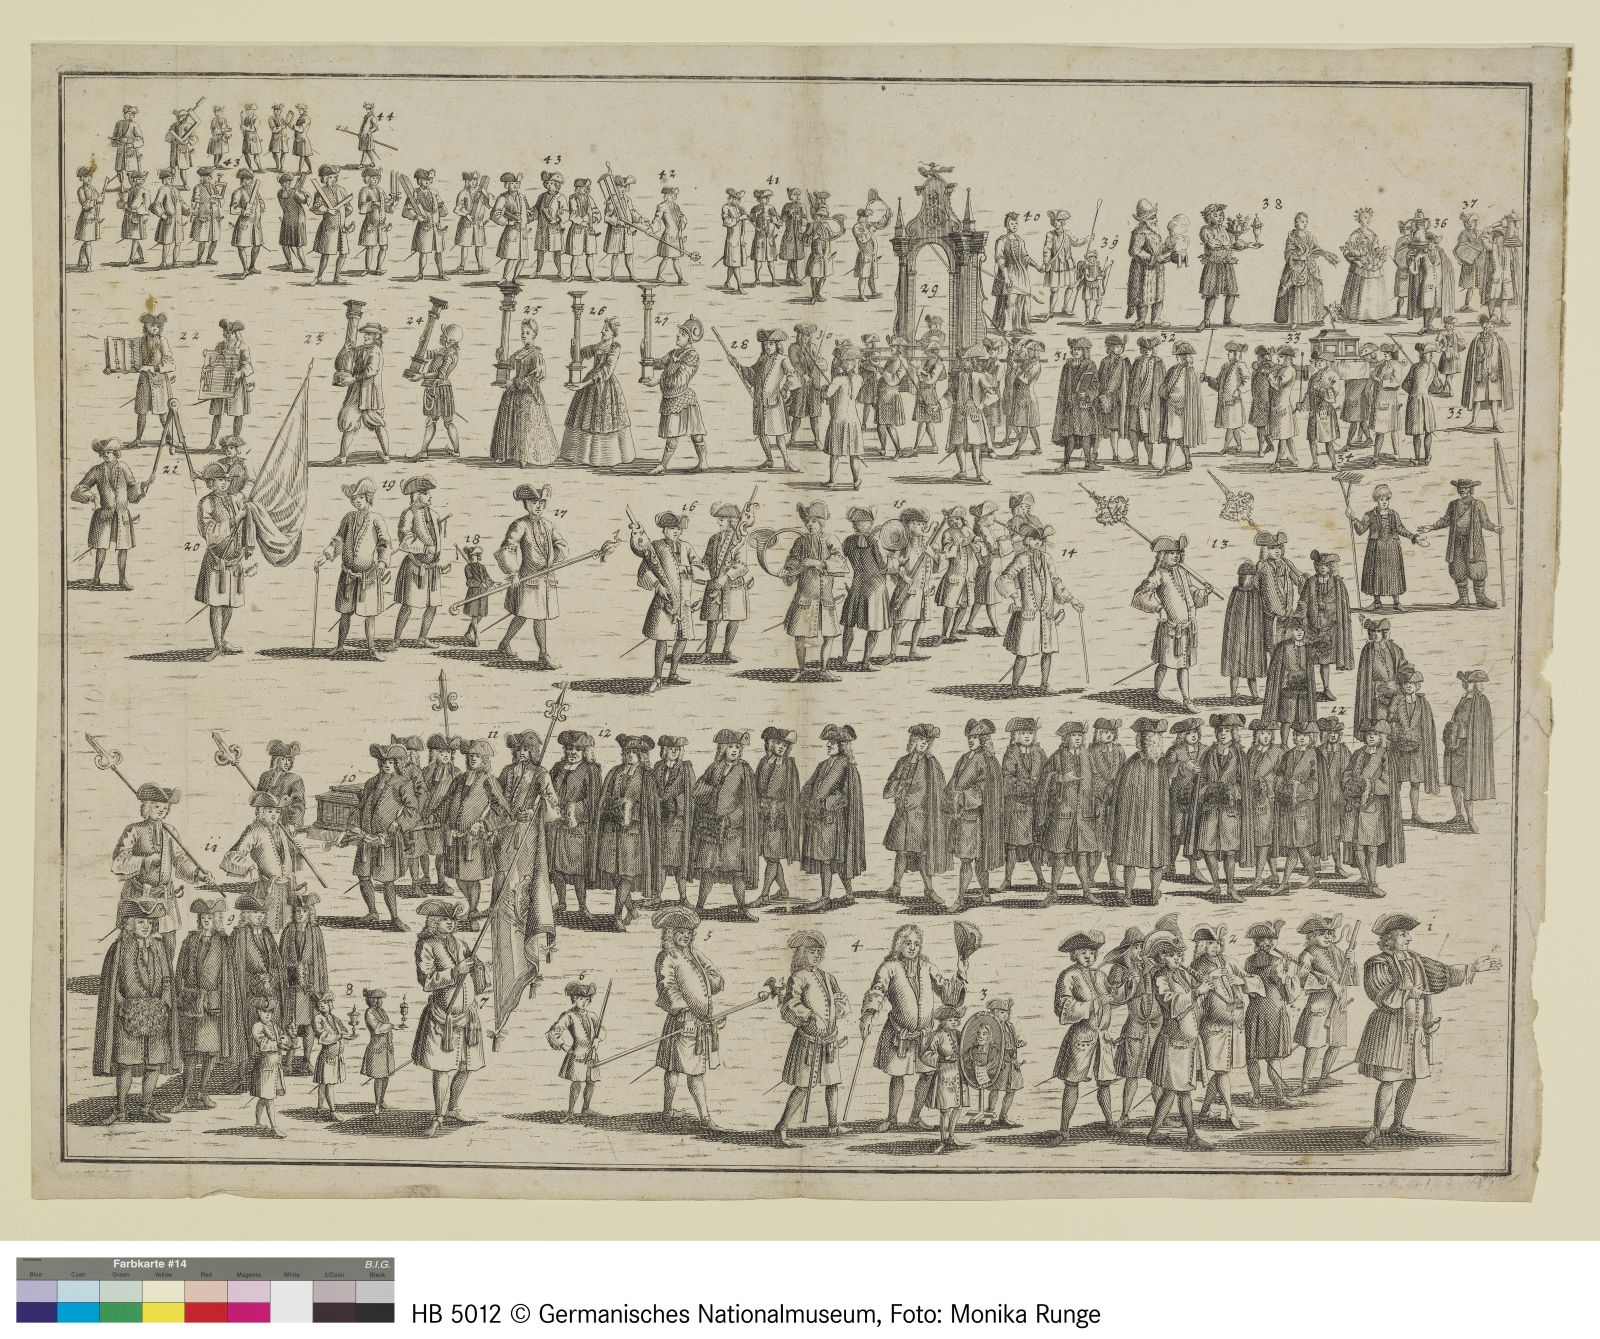 44
43
43
42
41
40
39
38
37
36
29
22
23
24
25
26
27
28
30
31
32
33
35
34
21
19
20
18
17
16
15
14
13
12
10
11
12
11
9
8
7
6
5
4
3
2
1
Farbkarte #14
B.I.G.
Blue Cyan Green Yellow Red Magenta White 3/Color Black
HB 5012 © Germanisches Nationalmuseum, Foto: Monika Runge